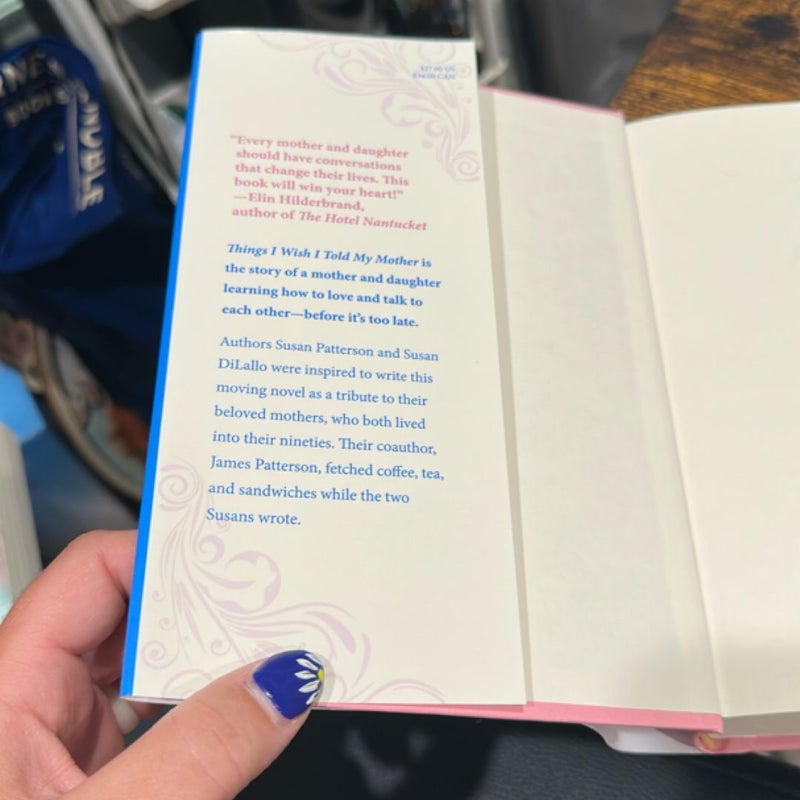 "Every mother and daughter
should have conversations
that change their lives. This
book will win your heart!"
—Elin Hilderbrand,
author of The Hotel Nantucket
Things I Wish I Told My Mother is
the story of a mother and daughter
learning how to love and talk to
each other—before it's too late.
Authors Susan Patterson and Susan
DiLallo were inspired to write this
moving novel as a tribute to their
beloved mothers, who both lived
into their nineties. Their coauthor,
James Patterson, fetched coffee, tea,
and sandwiches while the two
Susans wrote.